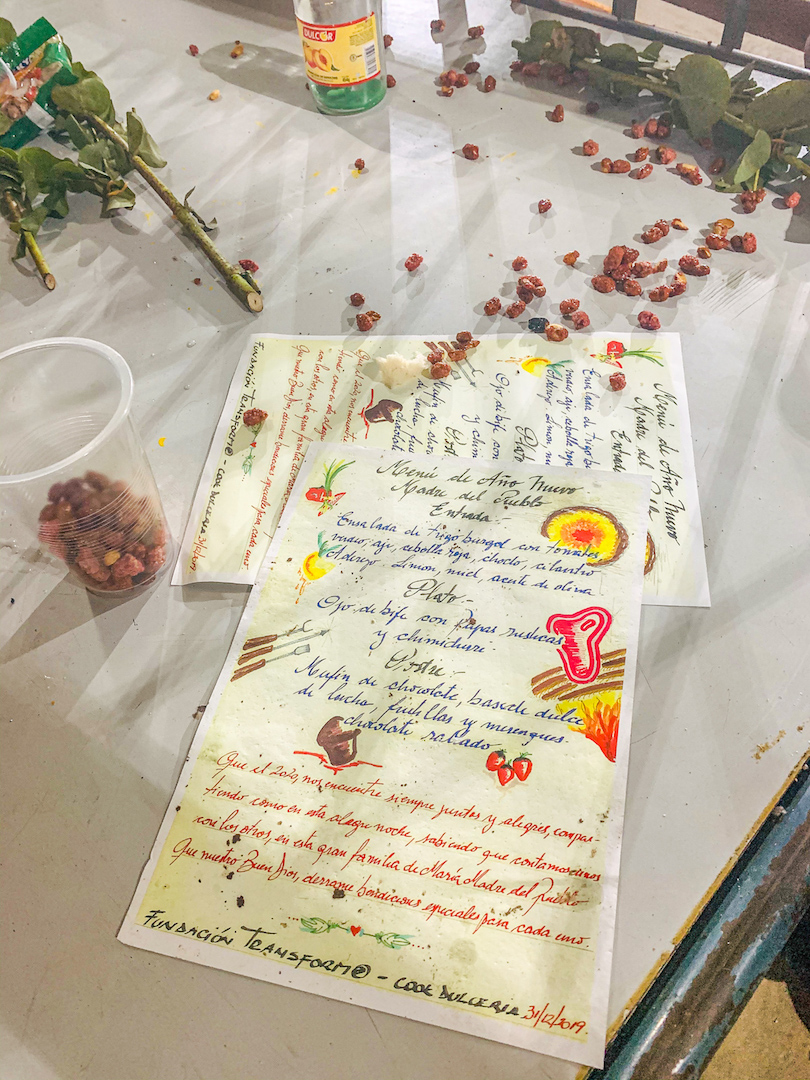 DULCOR
Menú de Año Nuevo
Madre del Pueblo
Entrada.-
Ensalada de trigo burgol con tomates
, aji, cebolla roja, choclo, cilantro
Aderezo limon, miel, aceite de oliva
Plato.-
Ojo de bife con papas rusticas
y chimichuri.
Postre.-
Mufin de chocolate, base de dulce
de leche, frutillas y merengues.
chocolate rallado
Que el 2020, nos encuentre siempre juntos y alegres, compar-
tiendo como en esta alegre noche, sabiendo que contamos unos
con los otros, en esta gran familia de María Madre del Pueblo
Que nuestro Buen Dios, derrame bendiciones especiales para cada uno.
FUNDACIÓN TRANSFORM@ - COOK DULCERIA 31/12/2019.
Menú de Año Nuevo
Madre del
Entrada
Ensalada de trigo bur
, aji, cebolla roja
Aderezo limon, miel
Plato
Ojo de bife
y chimi
Post
Mufin de choc
de leche, fru
chocolate
Que el 2020, nos encuentre
tiendo como en esta alegre
con los otros, en esta gran familia de
Que nuestro Buen Dios, derrame bendiciones especiales para cada uno
FUNDACIÓN TRANSFORM@ - COOK DULCERIA 31/12/2019